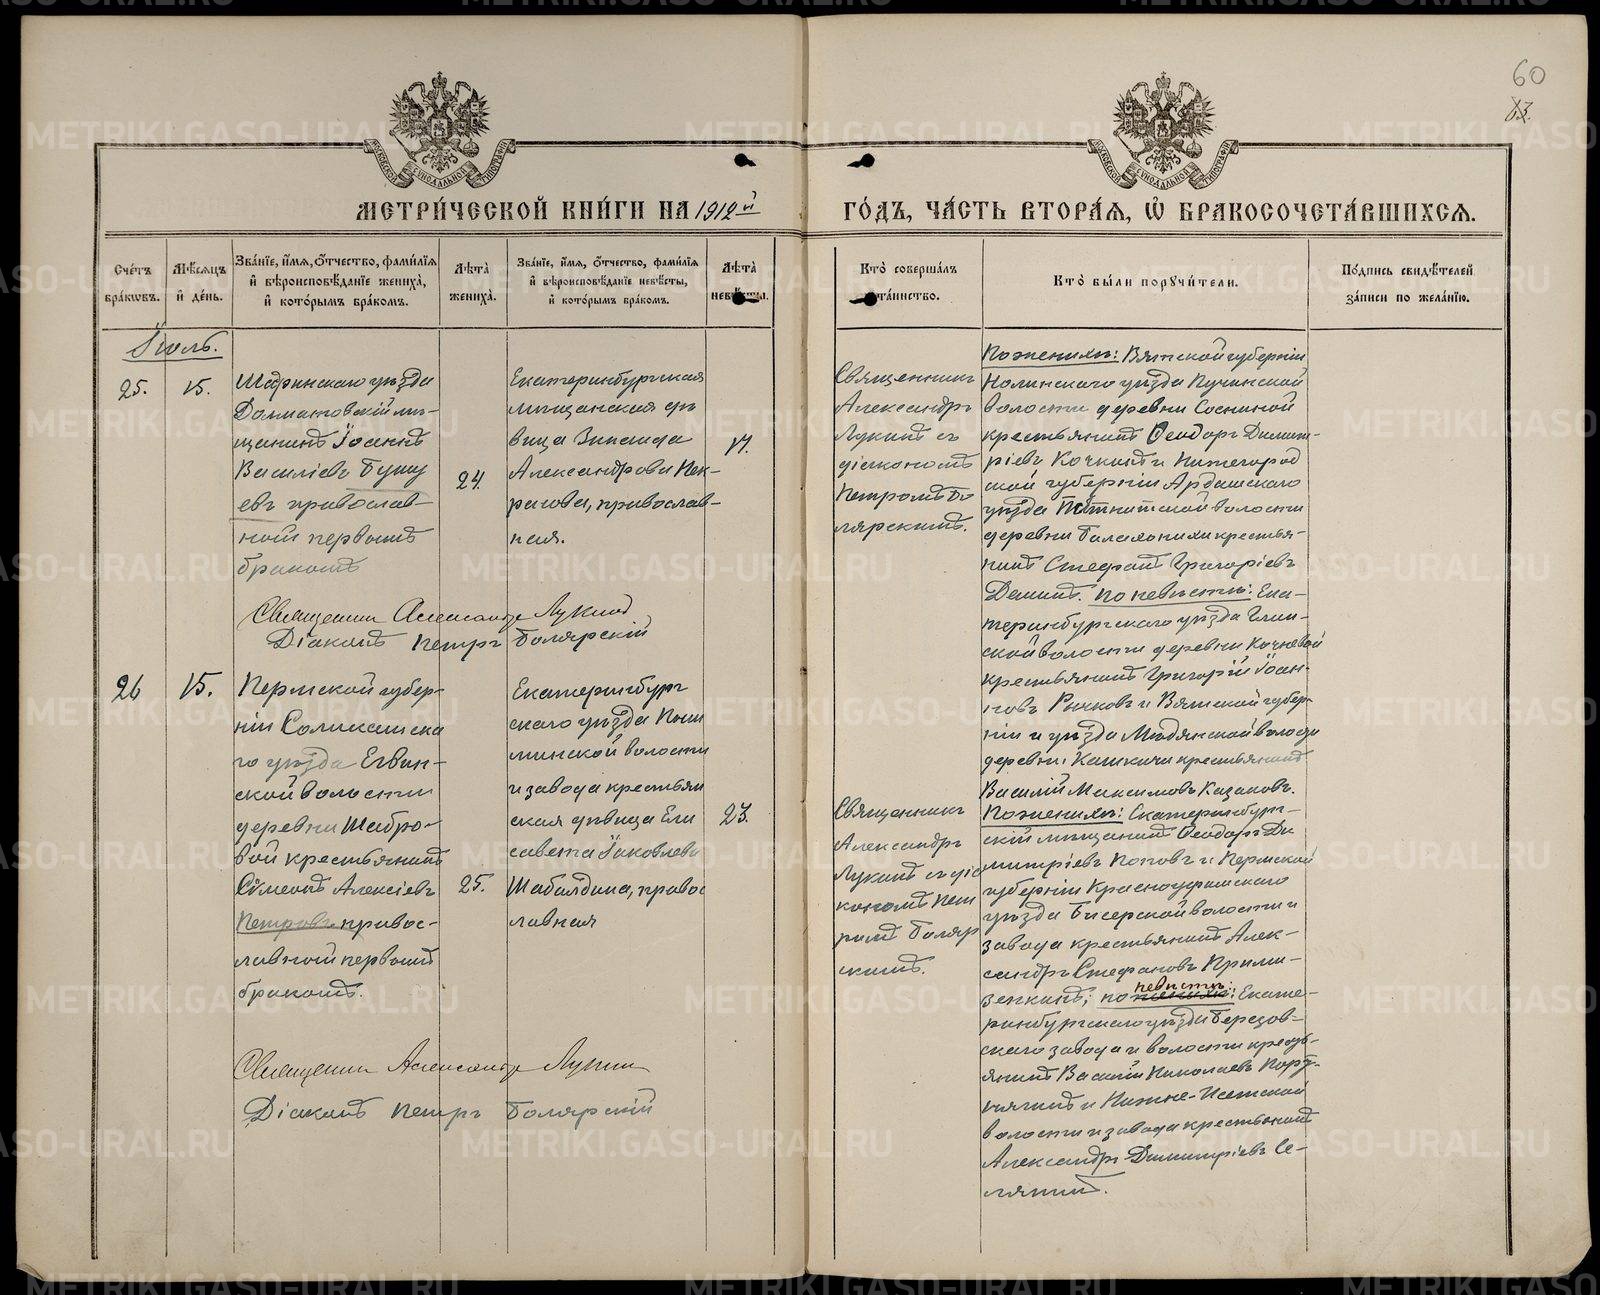 60
МЕТРИ́ЧЕСКОЙ КНИ́ГИ НА 1912й
ГО́ДЪ, ЧА́СТЬ ВТОРА́Я, Ѽ БРАКОСОЧЕТА́ВШИХСЯ.
Сче́тъ бра́ковъ.
Мѣ́сяцъ и де́нь.
Зва́нїе, и́мя, ѻ҆́тчество, фами́лїя и вѣроисповѣ́данїе жениха̀, и кото́рымъ бра́комъ.
Лѣ́та жениха̀.
Зва́нїе, и́мя, ѻ҆́тчество, фами́лїя и вѣроисповѣ́данїе невѣ́сты, и кото́рымъ бра́комъ.
Лѣ́та невѣ́сты.
Кто̀ соверша́лъ та́инство.
Кто̀ бы́ли порꙋчи́тели.
По́дпись свидѣ́телей за́писи по жела́нїю.
Іюль.
25.
15.
Шадринскаго уѣзда
Далматовскій мѣ-
щанинъ Іоаннъ
Василіевъ Бушу
евъ православ-
ной первымъ
бракомъ
24.
Екатеринбургская
мѣщанская дѣ
вица Зинаида
Александрова Нек-
расова, православ-
ная.
17.
Священникъ
Александръ
Лукинъ съ
діакономъ
Петромъ Бо
лярскимъ.
По женихѣ: Вятской губерніи
Нолинскаго уѣзда Кучинской
волости деревни Сосниной
крестьянинъ Ѳеодоръ Димит-
ріевъ Кочкинъ и Нижегород
ской губерніи Ардатскаго
уѣзда
деревни крестья-
нинъ Стефанъ Григоріевъ
Деминъ. По невѣстѣ: Ека-
теринбургскаго уѣзда Глин-
ской волости деревни Кочневой
крестьянинъ Григорій Іоан-
новъ Рычковъ и Вятской губер-
ніи и уѣзда Мѣдянской волости
деревни крестьянинъ
Василій Максимовъ Казаковъ.
Священникъ Александръ Лукинъ
Діаконъ Петръ Болярскій
26
15.
Пермской губер-
ніи Соликамска
го уѣзда Егвин-
ской волости
деревни Шабро-
вой крестьянинъ
Сѵмеонъ Алексіевъ
Петровъ, правос-
лавной первымъ
бракомъ.
25.
Екатеринбург
скаго уѣзда Пыш
минской волости
и завода крестьян
ская дѣвица Ели
савета Іаковлева
Шабалдина, правос
лавная
23.
Священникъ
Александръ
Лукинъ съ діа
кономъ Пет
ромъ Боляр
скимъ.
По женихѣ: Екатеринбург-
скій мѣщанинъ Ѳеодоръ Ди
митріевъ Поповъ и Пермской
губерніи Красноуфимскаго
уѣзда Бисерской волости и
завода крестьянинъ Алек-
сандръ Стефановъ
по невѣстѣ: Екате-
ринбургскаго уѣзда Березов-
скаго завода и волости кресть-
янинъ Василій Николаевъ
и Нижне-Исетской
волости и завода крестьянинъ
Александръ Димитріевъ Се-
лянинъ.
Священникъ Александръ Лукин
Діаконъ Петръ Болярскій
METRIKI.GASO-URAL.RU